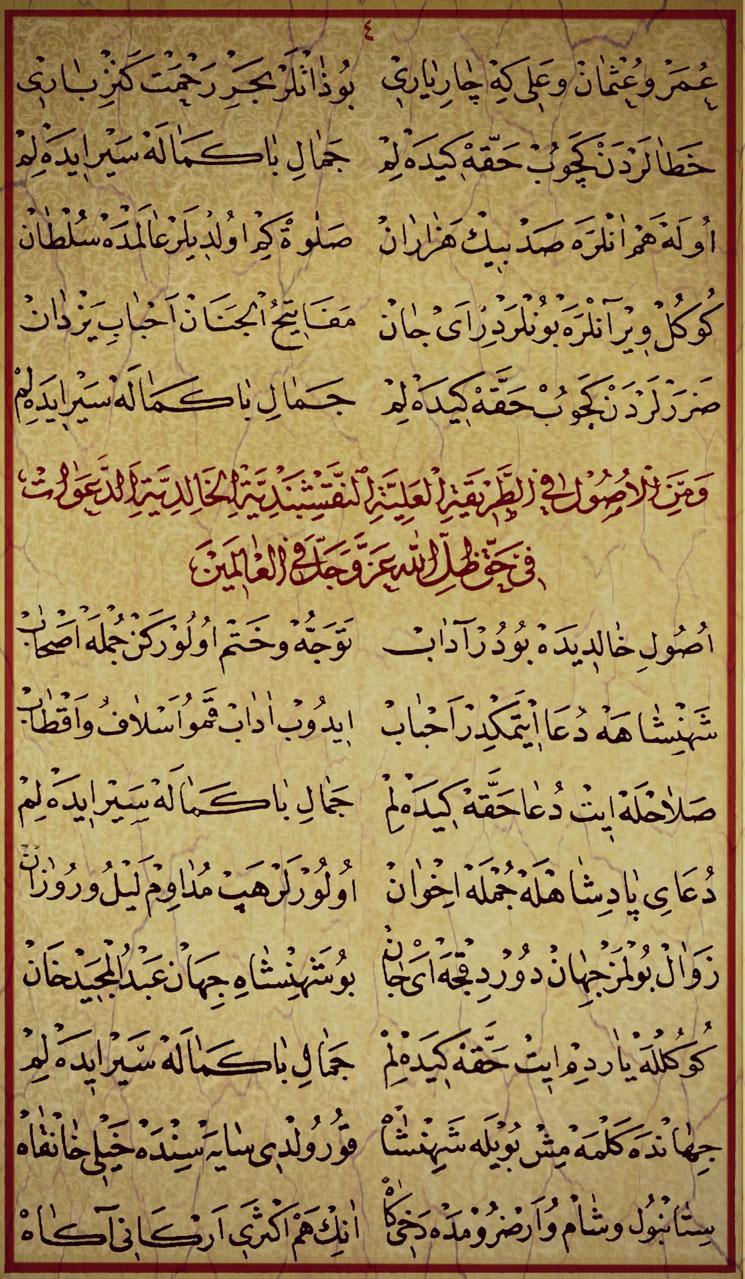 ٤
عُمَرْ وعُثْمَانْ وعَلِى كِهْ چَارِ يَارِى بُو ذَاتْلَرْ بَحْرِ رَحْمَتْ كَنْزِ بَارِى
خَطَالَرْدَنْ كَچُوبْ حَقَّهْ كِيدَهْ لِمْ جَمَالِ بَاكَمَالَهْ سَيْر ايدَهْ لِمْ
اُولَهْ هَمْ اٰنْلَرَه صَدْ بِيكْ هَزَارَانْ صَلٰوةْ كِمْ اولْدِيلَرْ عَالَمْدَهْ سُلْطَانْ
كُوكُلْ وِيرْ آنْلَرَهْ بُونْلَرْدِرْ اَىْ جَانْ مَفَاتِيحُ الْجَنَانْ اَحْبَابِ يَزْدَانْ
ضَرَرْلَرْدَنْ كَچُوبْ حَقَّهْ كِيدَهْ لِمْ جَمَالِ بَاكَمَالَهْ سَيْر ايدَه لِمْ
وَمِنَ الْاُصُولِ فِى الطَّرِيقَةِ الْعَلِيَّةِ النَّقْشِبَنْدِيَّةِ الْخَالِدِيَّةِ الدَّعَوَاتْ
فِى حَقِّ ظِلِّ اللّٰهِ عَزَّ وَجَلَّ فِى الْعَالَمِينَ
اُصُولِ خَالِدِيدَهْ بُودُرْ آدَابْ تَوَجُّهْ وخَتْم اُولُورْ رُكَنْ جُمْلَه اَصْحَابْ
شَهِنْشَاهَهْ دُعَا اِيتْمَكْدِرْ اَحْبَابْ ايدُوبْ ادَابْ قَمُو اَسْلَافُ وَاَقْطَابْ
صَلَاحْلَهْ ايتْ دُعَا حَقَّهْ كِيدَهْ لِمْ جَمَالِ بَاكَمَالَهْ سَيْر ايدَهْ لِمْ
دُعَاىِ پَادِشَاهْلَهْ جُمْلَهْ اِخْوَانْ اُولُورْلَرْ هَپْ مُدَاوِمْ لَيْلُ ورُوزَانْ
زَوَالْ بُولْمَزْ جِهَانْ دُورْدِقْجَهْ اَىْ جَانْ بُو شَهِنْشَاهِ جِهَانْ عَبْدُ الْمَجِيدْ خَانْ
كُوكُلْلَهْ يَارْدِمْ ايتْ حَقَّهْ كِيدَهْ لِمْ جَمَالِ بَاكَمَالَهْ سَيْر ايدَهْ لِمْ
جِهَانْدَه كَلْمَهْ مِشْ بُويْلَه شَهِنْشَاهْ قُورُولْدِى سَايَهْ سِنْدَهْ خَيْلِى خَانْقَاهْ
سِتَانْبُول وشَامْ وُاَرْضرُومْدَه دَخِى كَاهْ اٰنِكْ هَمْ اَكْثَرِى اَرْكَانِى آكَاهْ